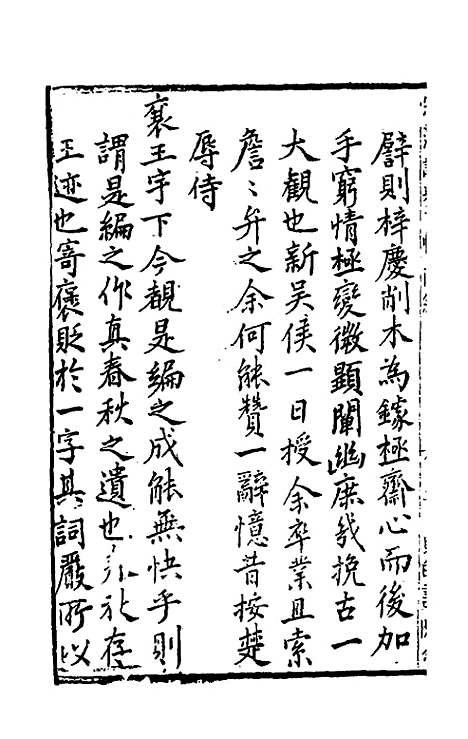 譬則梓慶削木為鐻極齋心而後加
手窮情極變微顯闡幽庶幾挽古一
大觀也新吳侯一日授余卒業且索
詹〻弁之余何能贊一辭憶昔按楚
辱侍
襄王宇下今覩是編之成能無快乎則
謂是編之作真春秋之遺也非於存
王迹也寄褒貶於一字其詞嚴所以